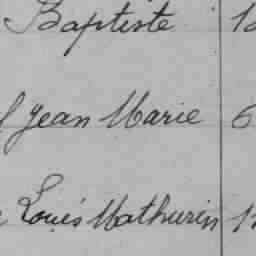 Baptiste
Jean Marie 6
Louis Mathurin